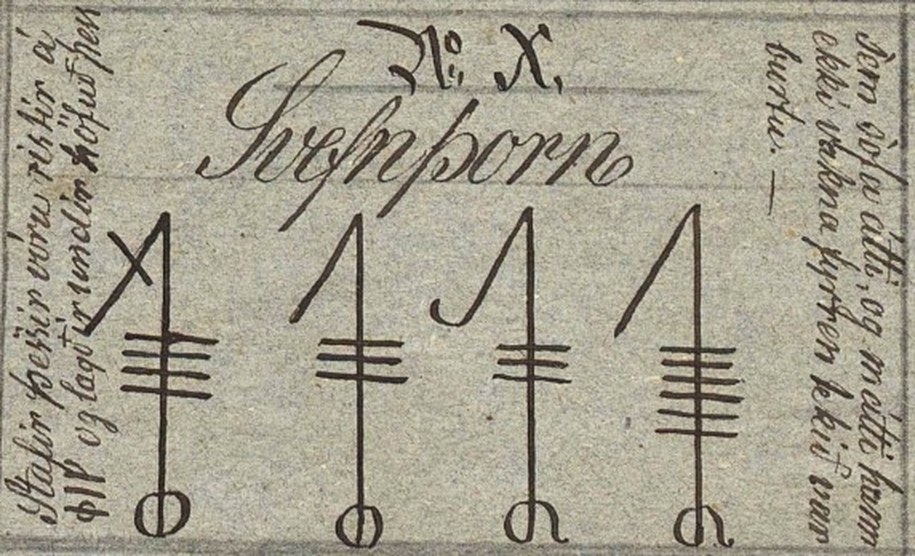 No. X.
Svefnþorn
Stafir þessir vóru ristir á
og lagðir undir höfuð þess
sem sofa átti, og mátti hann
ekki vakna fyrr en tekið var
burtu. —